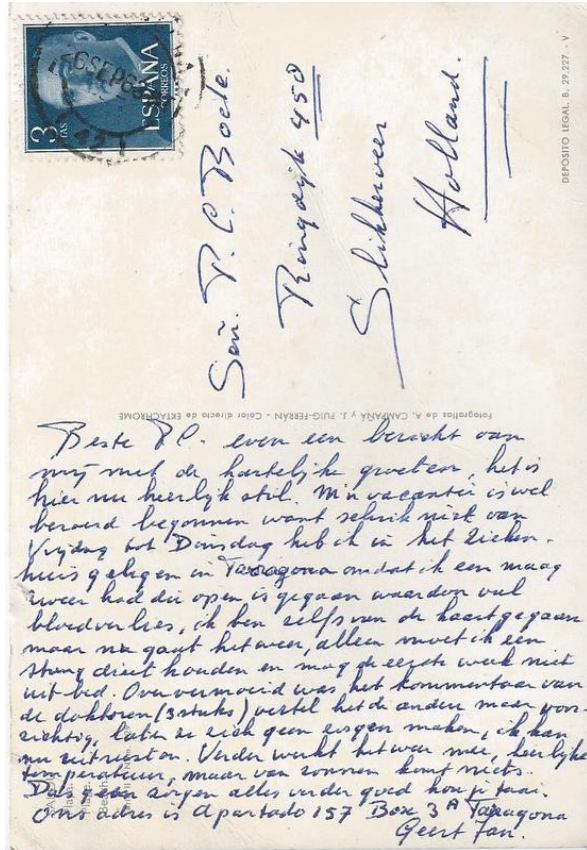 ESPAÑA
CORREOS
3 PTAS
Señ. P. C. Boele.
Ringdijk 450
Slikkerveer
Holland.
DEPOSITO LEGAL. B. 29.227 - V
Fotografías de A. CAMPAÑA y J. PUIG-FERRAN - Color directo de EKTACHROME
Beste P.C. even een bericht van
mij met de hartelijke groeten, het is
hier nu heerlijk stil. M'n vacantie is wel
beroerd begonnen want schrik niet van
Vrijdag tot Dinsdag heb ik in het zieken-
huis gelegen in Tarragona omdat ik een maag
zweer had die open is gegaan waardoor veel
bloedverlies, ik ben zelfs van de kaart gegaan
maar nu gaat het weer, alleen moet ik een
streng dieet houden en mag de eerste week niet
uit bed. Oververmoeid was het kommentaar van
de doktoren (3 stuks) vertel het de andere maar voor-
zichtig, laten ze zich geen zorgen maken, ik kan
nu uitrusten. Verder werkt het weer mee, heerlijke
temperatuur, maar van zonnen komt niets.
Dus geen zorgen alles verder goed hou je taai.
Ons adres is Apartado 157 Box 3A Tarragona
Geert Jan.
Plage.